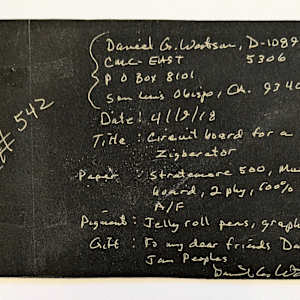 Daniel G. Watson, D-1089
CMC-EAST 5306
P O Box 8101
San Luis Obispo, CA. 9340
Date: 4/12/18
Title: Circuit board for a
Zigberator
Paper: Strathmore 500, Mu
board, 2 ply, 100%
A/F
Pigment: Jelly roll pens, graph
Gift: To my dear friends Da
Jan Peoples
Daniel G. W
# 542